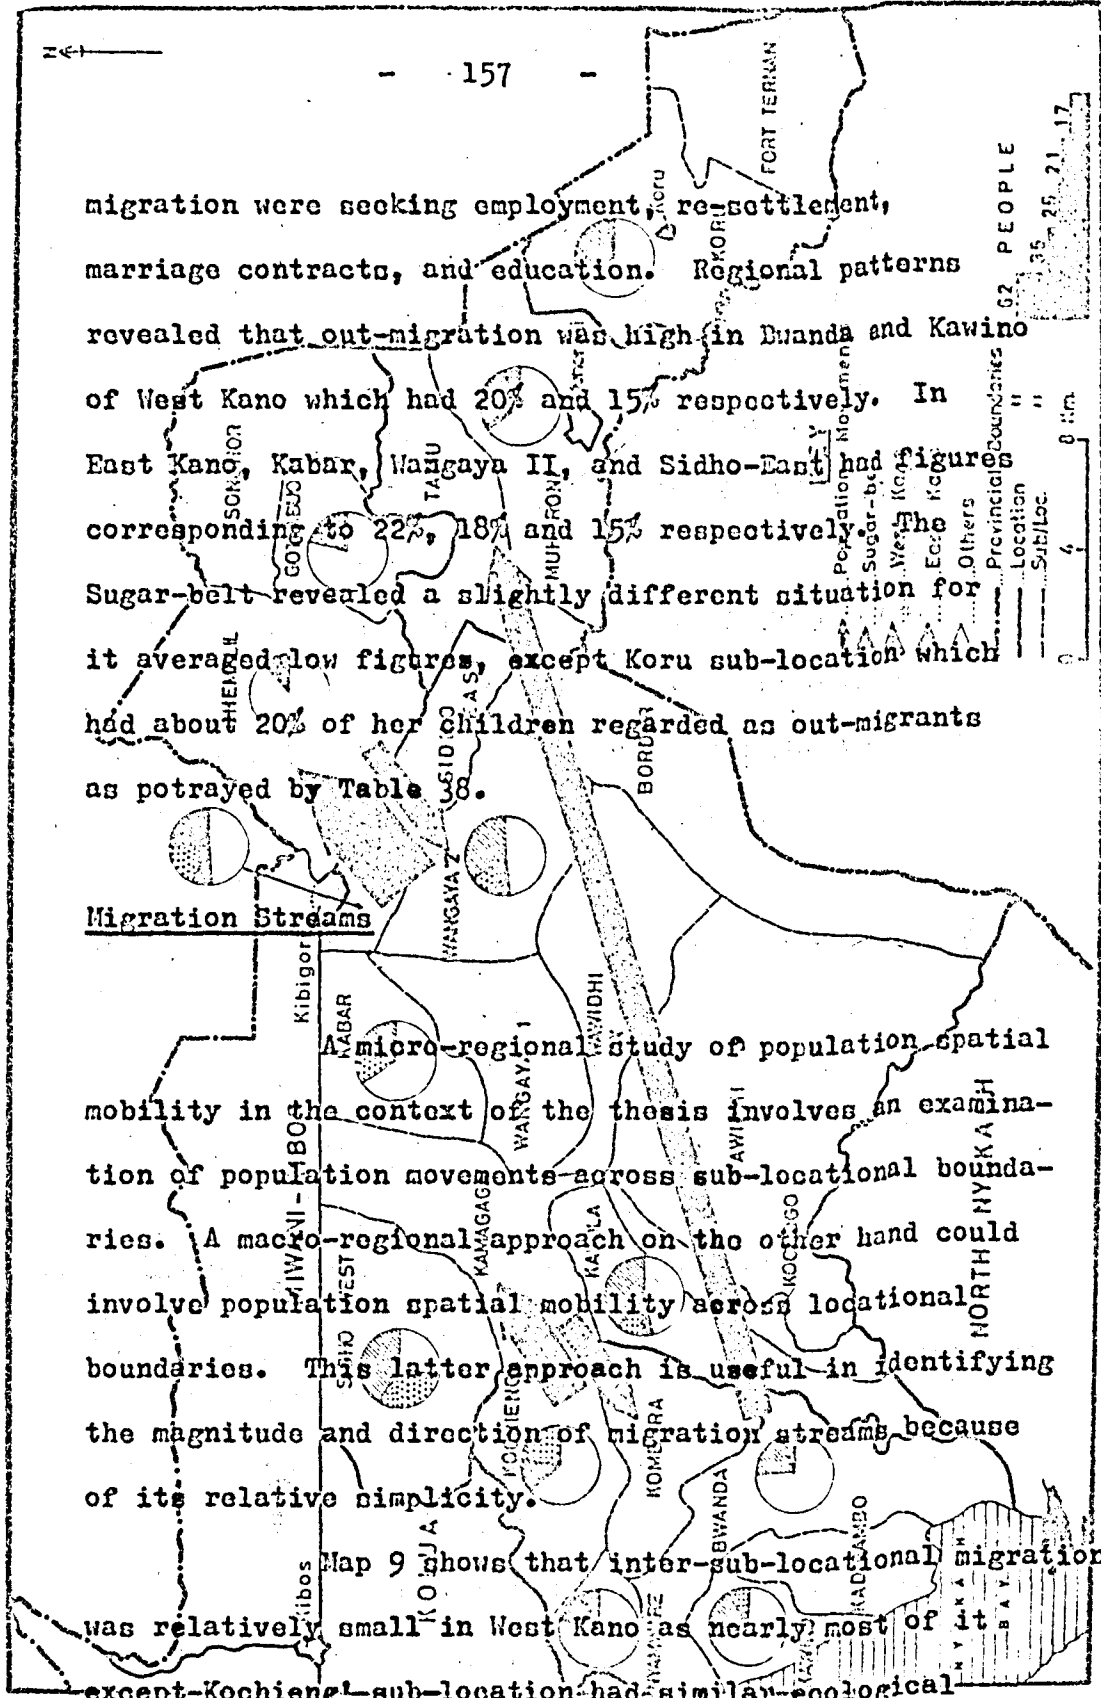 - 157 -
migration were seeking employment, re-settlement,
marriage contracts, and education. Regional patterns
revealed that out-migration was high in Bwanda and Kawino
of West Kano which had 20% and 15% respectively. In
East Kano, Kabar, Wangaya II, and Sidho-East had figures
corresponding to 22%, 18% and 15% respectively. The
Sugar-belt revealed a slightly different situation for
it averaged low figures, except Koru sub-location which
had about 20% of her children regarded as out-migrants
as potrayed by Table 38.
Migration Streams
A micro-regional study of population spatial
mobility in the context of the thesis involves an examina-
tion of population movements across sub-locational bounda-
ries. A macro-regional approach on the other hand could
involve population spatial mobility across locational
boundaries. This latter approach is useful in identifying
the magnitude and direction of migration streams because
of its relative simplicity.
Map 9 shows that inter-sub-locational migration
was relatively small in West Kano as nearly most of it
except Kochieng' sub-location had similar ecological
N
FORT TERNAN
Koru
KORU
62 PEOPLE
35 26 21 17
Population Movement
Sugar-belt
West Kano
East Kano
Others
Provincial Boundaries
Location "
Sub/Loc. "
0 4 8 Km
TAMU
BORDER
WANGAYA 2
Kibigori
KABAR
WANGAYA 1
KOCHOGO
NORTH NYAKACH
WEST
KOMBURA
BWANDA
Kibos
BAY